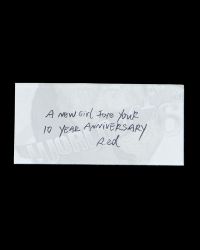 A NEW Girl FORE YOUR
10 YEAR ANNIVERSARY
Red